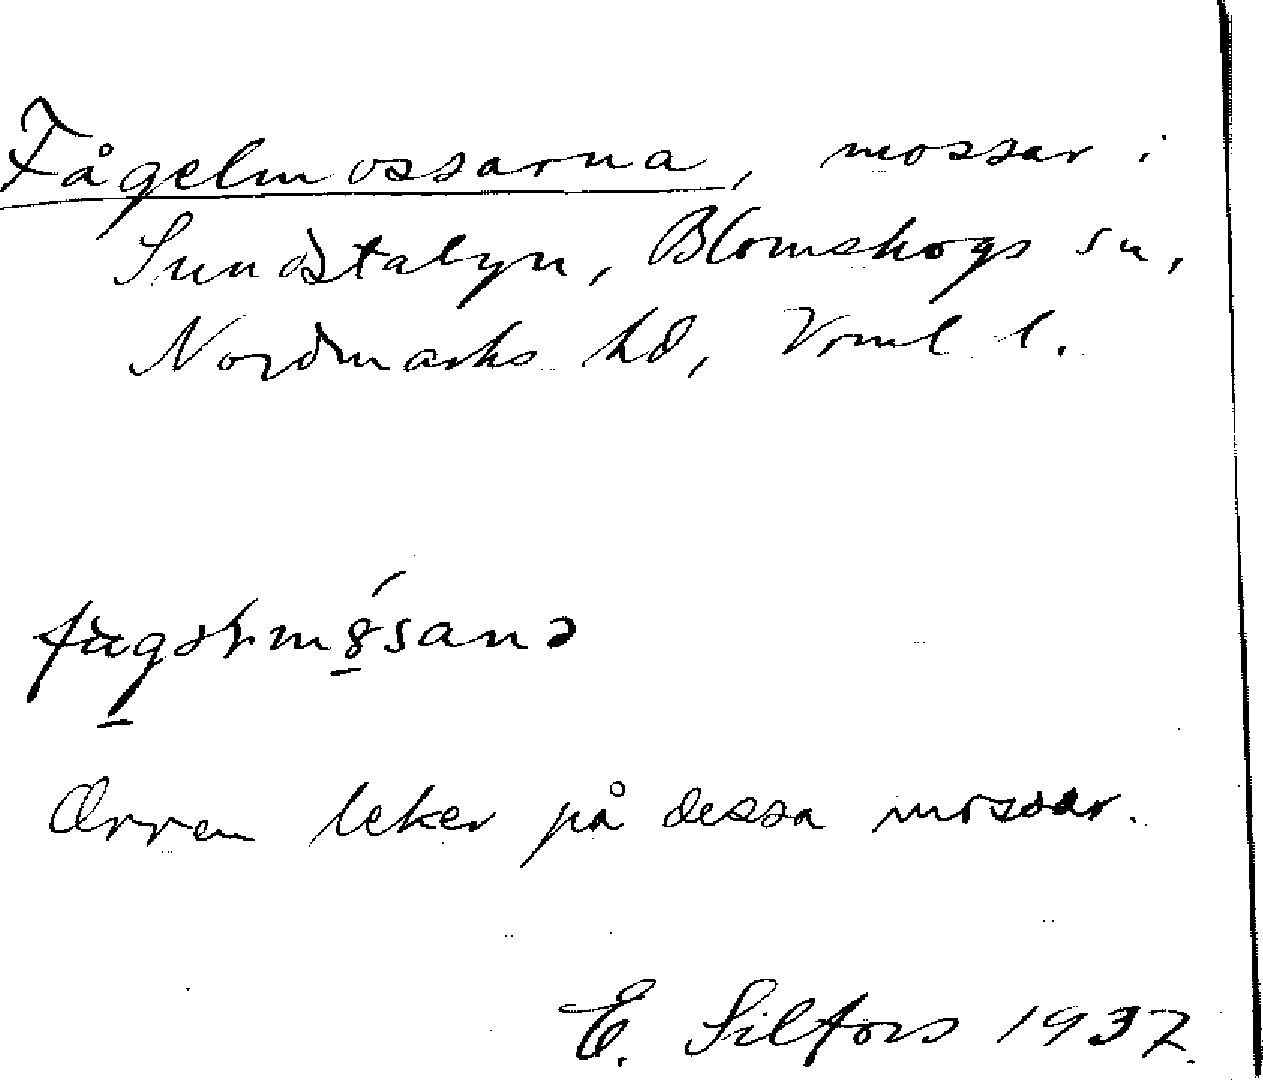 Fågelmossarna, mossar i
Sundstabyn, Blomskogs sn,
Nordmarks hd, Vrml l.
Orren leker på dessa mossar.
E. Silfors 1937.